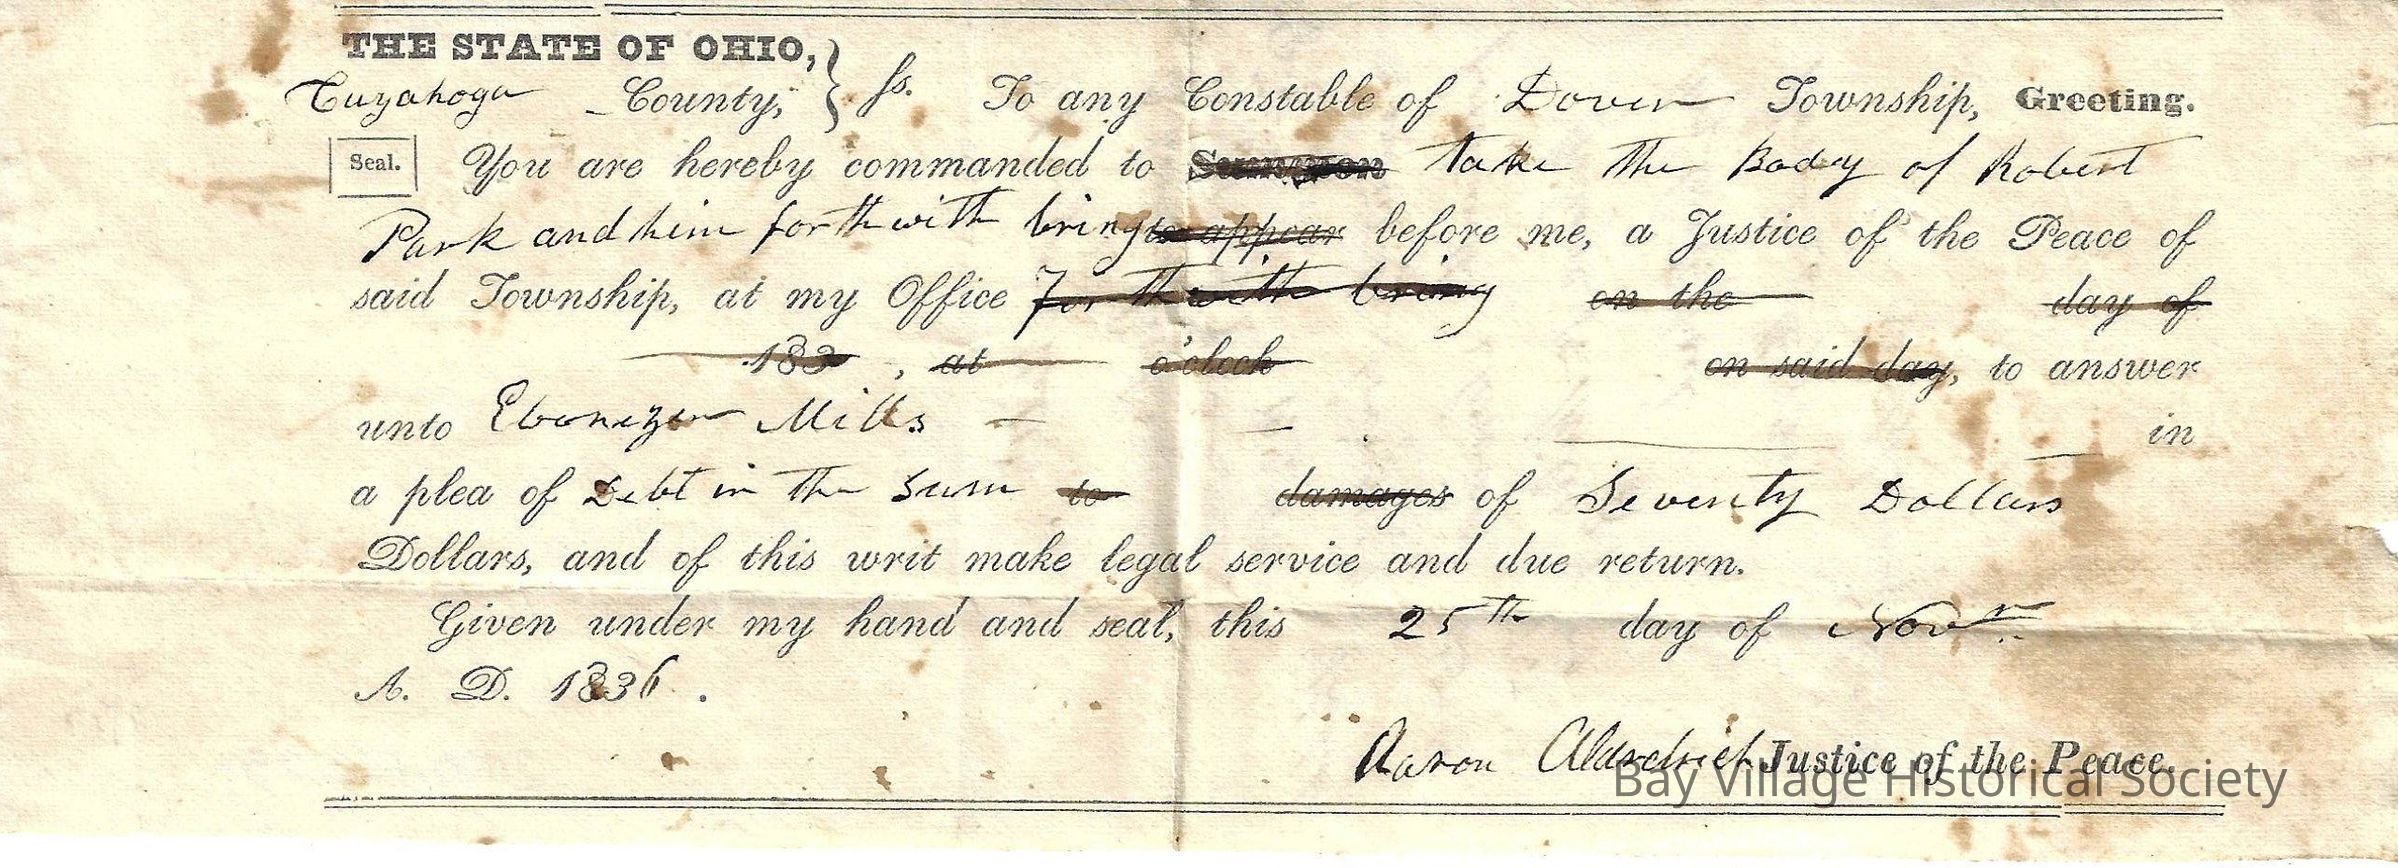 THE STATE OF OHIO,
Cuyahoga County, } ss. To any Constable of Dover Township, Greeting.
Seal. You are hereby commanded to Summon take the Body of Robert
Park and him forthwith bring to appear before me, a Justice of the Peace of
said Township, at my Office forthwith bring on the day of
183 , at o'clock on said day, to answer
unto Ebenezer Mills in
a plea of Debt in the sum to damages of Seventy Dollars
Dollars, and of this writ make legal service and due return.
Given under my hand and seal, this 25th day of Novr
A. D. 1836.
Aaron Aldredrich Justice of the Peace.
Bay Village Historical Society